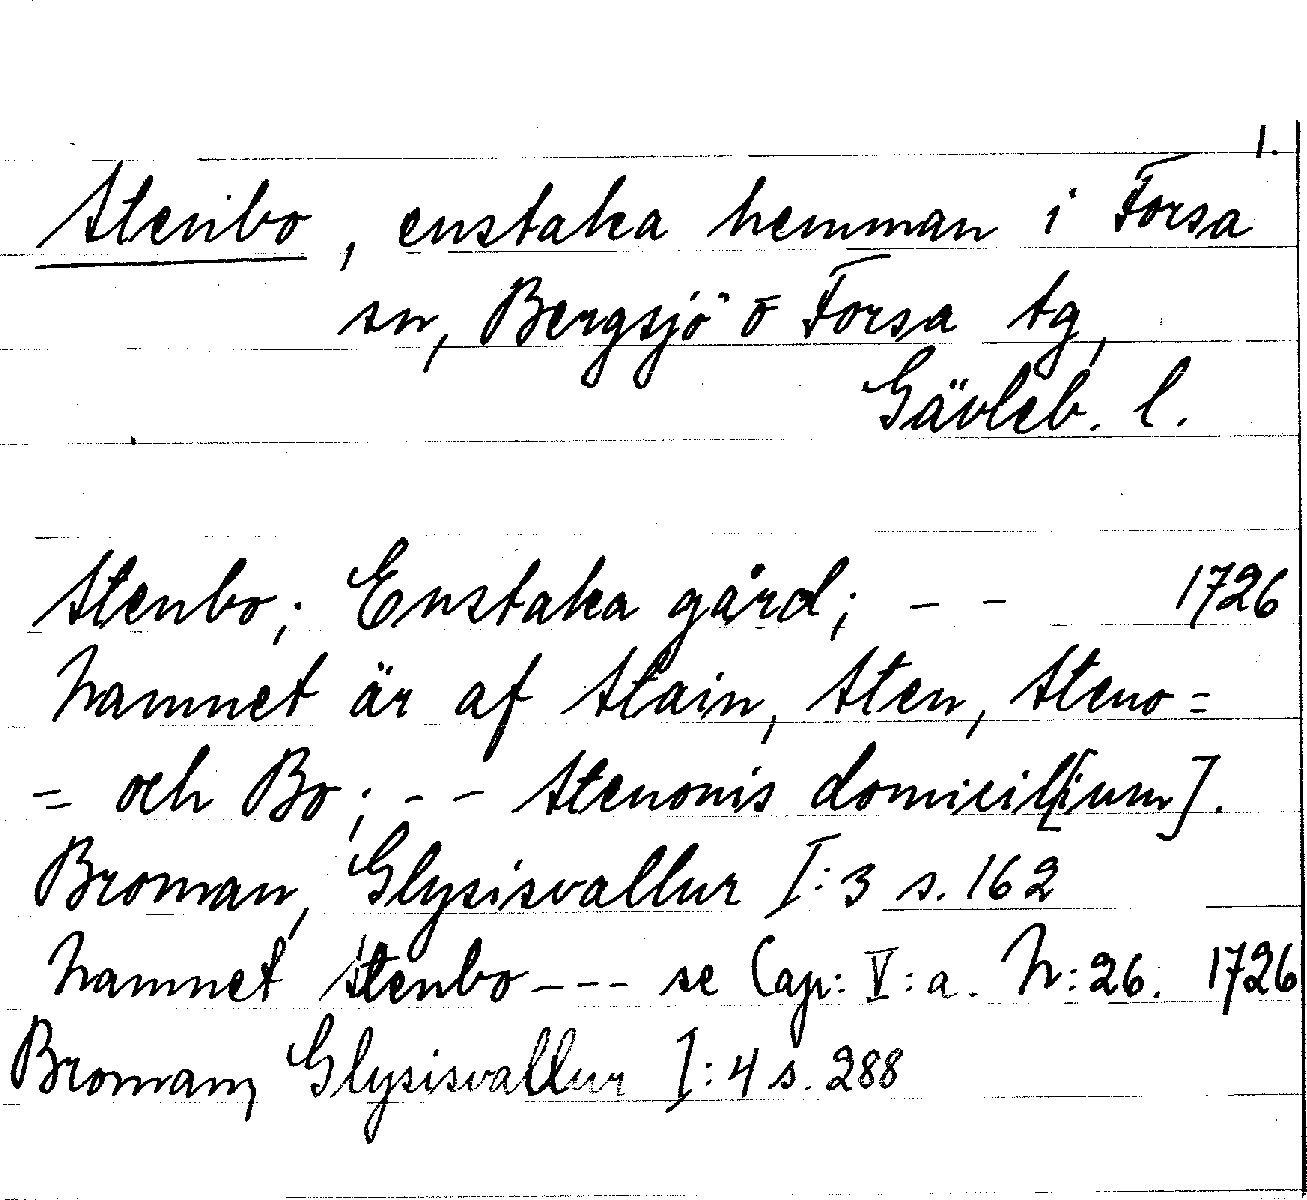 1.
Stenbo, enstaka hemman i Forsa
sn, Bergsjö o Forsa tg,
Gävleb. l.
Stenbo; Enstaka gård; - - 1726
Namnet är af Stain, Sten, Steno=
= och Bo; - - Stenonis domicil[ium].
Broman, Glysisvallur I:3 s. 162
Namnet Stenbo --- se Cap: V:a. N:26. 1726
Broman, Glysisvallur I:4 s. 288